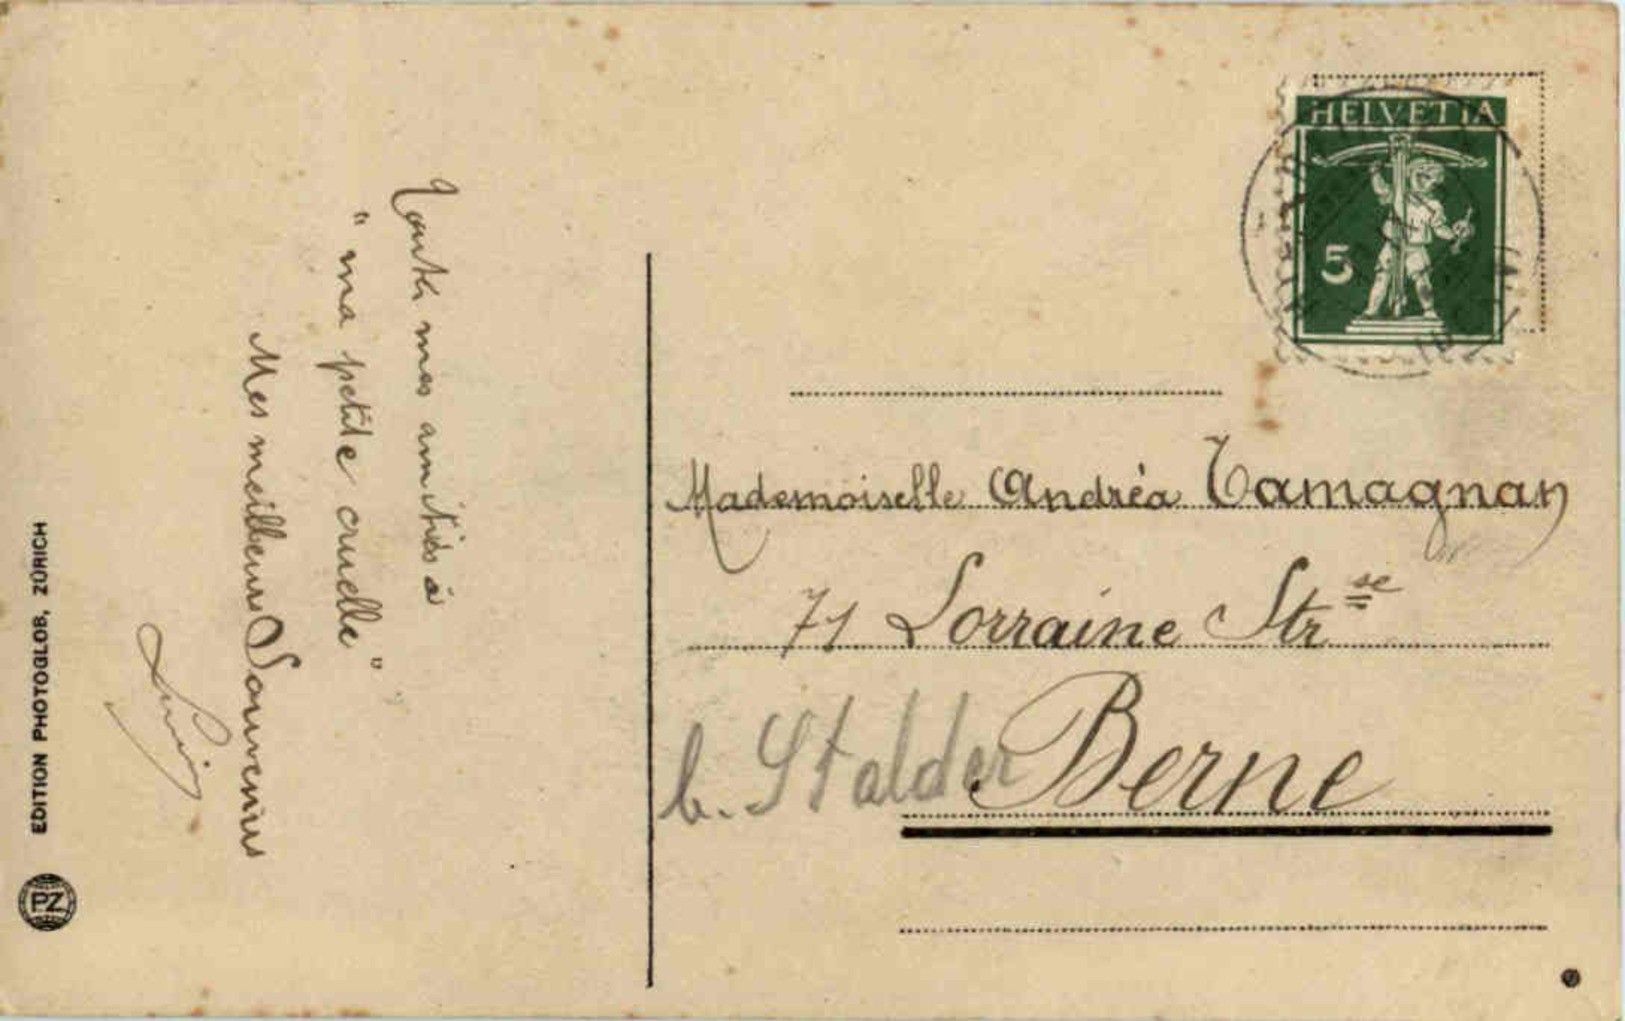 Toutes mes amitiés à
"ma petite cruelle"
Mes meilleurs Souvenirs
EDITION PHOTOGLOB, ZÜRICH
PZ
HELVETIA
5
Mademoiselle Andréa Tamagnan
71 Lorraine Str^se
b. Stalder Berne